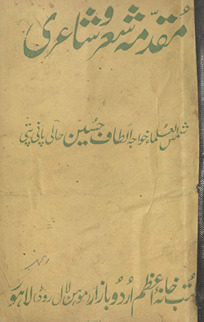 مقدمہ شعر و شاعری
شمس العلماء خواجہ الطاف حسین حالی پانی پتی
کتب خانہ اعظم اردو بازار موہن لال روڈ لاہور